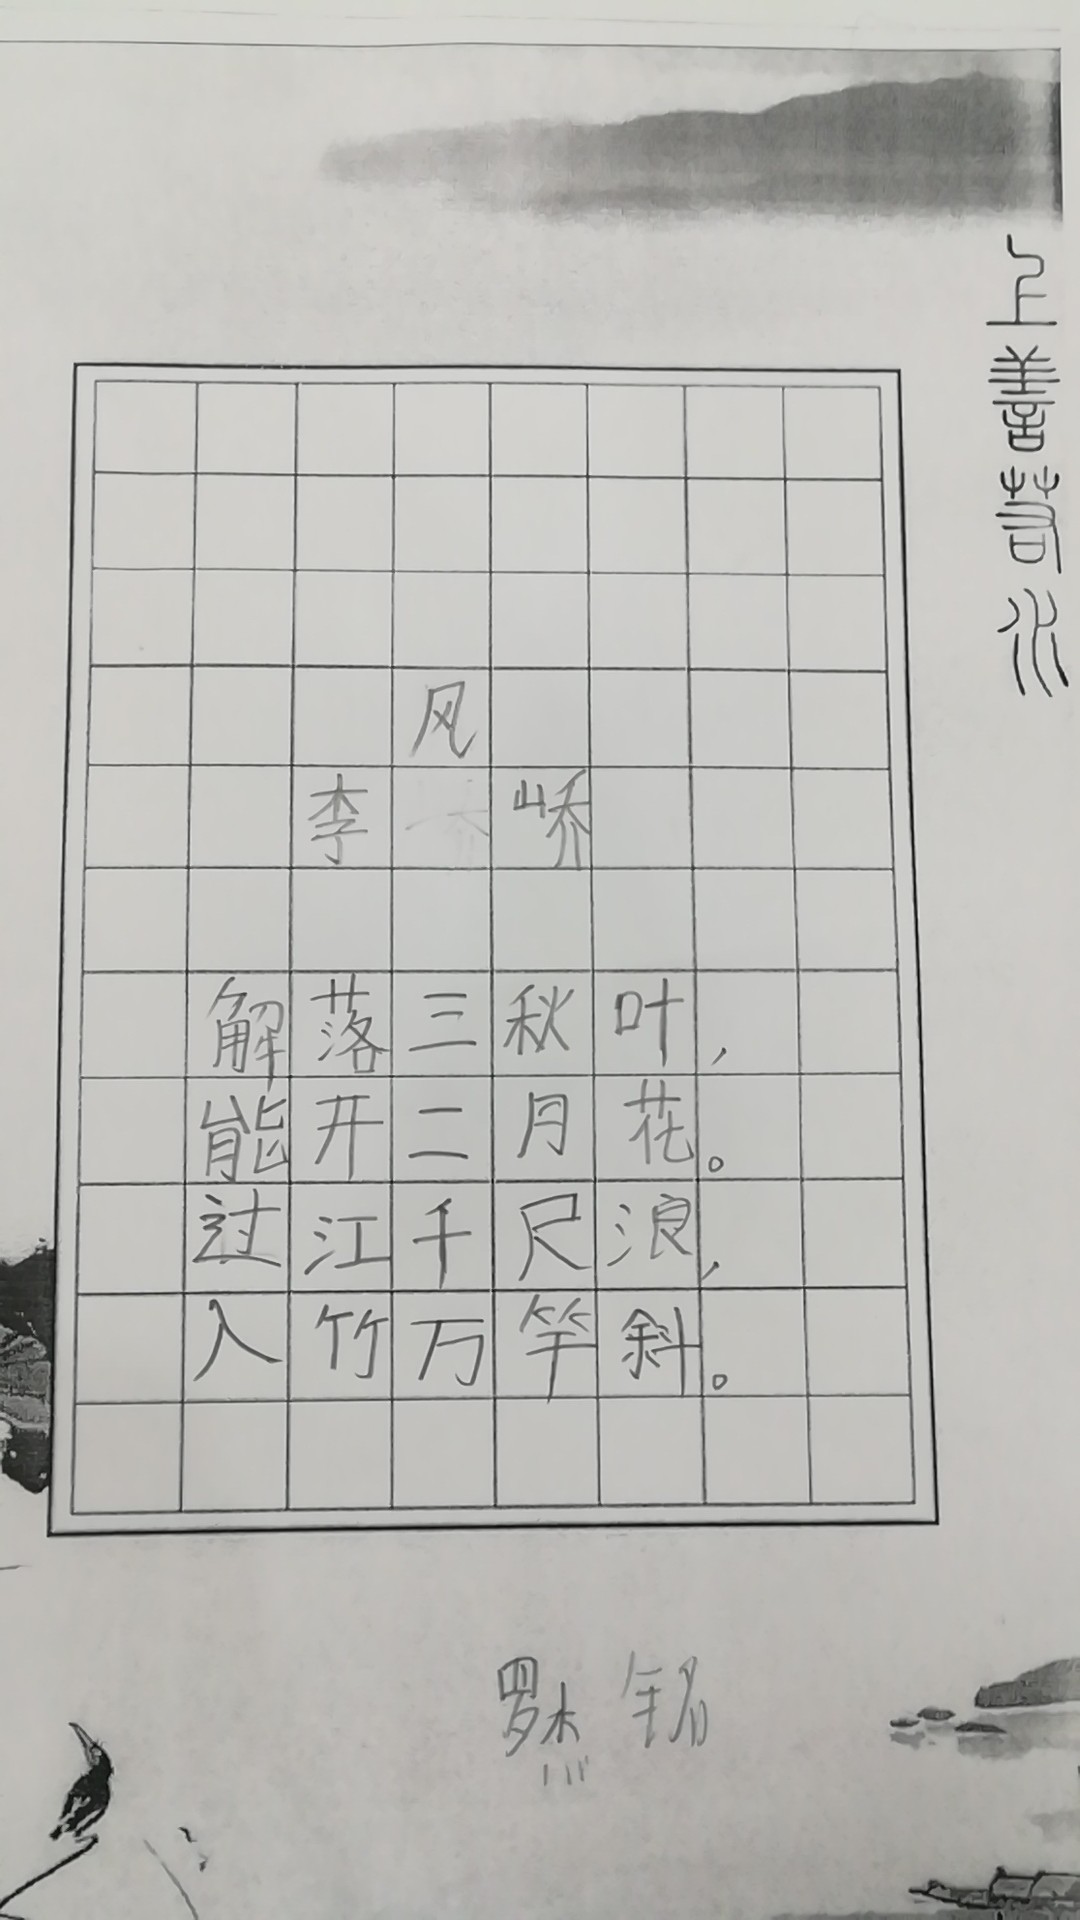 上善若水
风
李 峤
解落三秋叶，
能开二月花。
过江千尺浪，
入竹万竿斜。
罗杰 铭